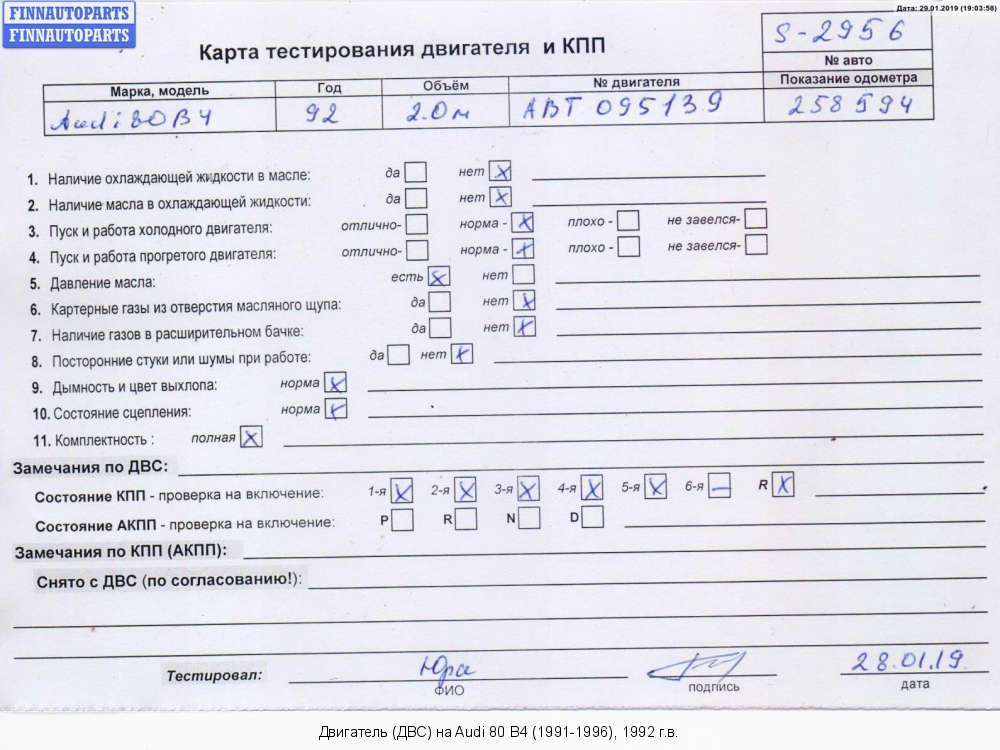 FINNAUTOPARTS
FINNAUTOPARTS
Дата: 29.01.2019 (19:03:58)
Карта тестирования двигателя и КПП
S-2956
№ авто
Марка, модель Год Объём № двигателя Показание одометра
Audi 80 B4 92 2.0м ABT 095139 258594
1. Наличие охлаждающей жидкости в масле: да нет x
2. Наличие масла в охлаждающей жидкости: да нет x
3. Пуск и работа холодного двигателя: отлично- норма - x плохо - не завелся-
4. Пуск и работа прогретого двигателя: отлично- норма - x плохо - не завелся-
5. Давление масла: есть x нет
6. Картерные газы из отверстия масляного щупа: да нет x
7. Наличие газов в расширительном бачке: да нет x
8. Посторонние стуки или шумы при работе: да нет x
9. Дымность и цвет выхлопа: норма x
10. Состояние сцепления: норма x
11. Комплектность : полная x
Замечания по ДВС:
Состояние КПП - проверка на включение: 1-я x 2-я x 3-я x 4-я x 5-я x 6-я – R x
Состояние АКПП - проверка на включение: P R N D
Замечания по КПП (АКПП):
Снято с ДВС (по согласованию!):
Тестировал: Юра 28.01.19
ФИО подпись дата
Двигатель (ДВС) на Audi 80 B4 (1991-1996), 1992 г.в.